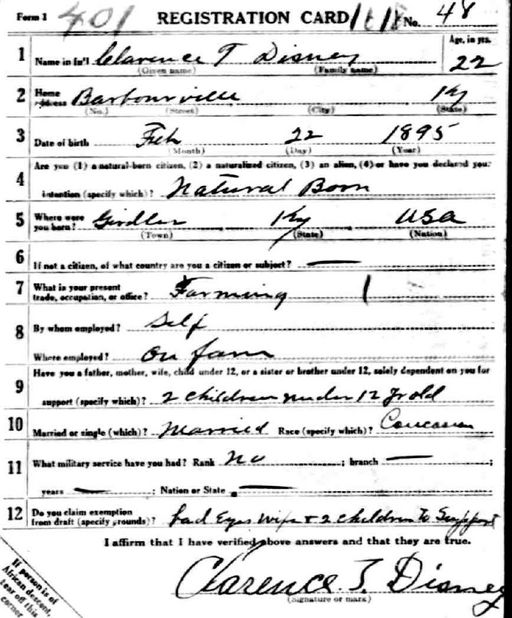 Form 1 401 REGISTRATION CARD No. 48
1 Name in full Clarence T Disney Age, in yrs. 22
(Given name) (Family name)
2 Home address Barbourville Ky
(No.) (Street) (City) (State)
3 Date of birth Feb 22 1895
(Month) (Day) (Year)
Are you (1) a natural-born citizen, (2) a naturalized citizen, (3) an alien, (4) or have you declared your
4 intention (specify which)? Natural Born
5 Where were you born? Girdler Ky USA
(Town) (State) (Nation)
6 If not a citizen, of what country are you a citizen or subject? —
7 What is your present trade, occupation, or office? Farming
8 By whom employed? Self
Where employed? On farm
9 Have you a father, mother, wife, child under 12, or a sister or brother under 12, solely dependent on you for
support (specify which)? 2 children under 12 yr old
10 Married or single (which)? Married Race (specify which)? Caucasian
11 What military service have you had? Rank No ; branch —
years — ; Nation or State —
12 Do you claim exemption from draft (specify grounds)? bad Eyes wife & 2 children to Support
I affirm that I have verified above answers and that they are true.
Clarence T. Disney
(Signature or mark)
If person is of
African descent,
tear off this
corner